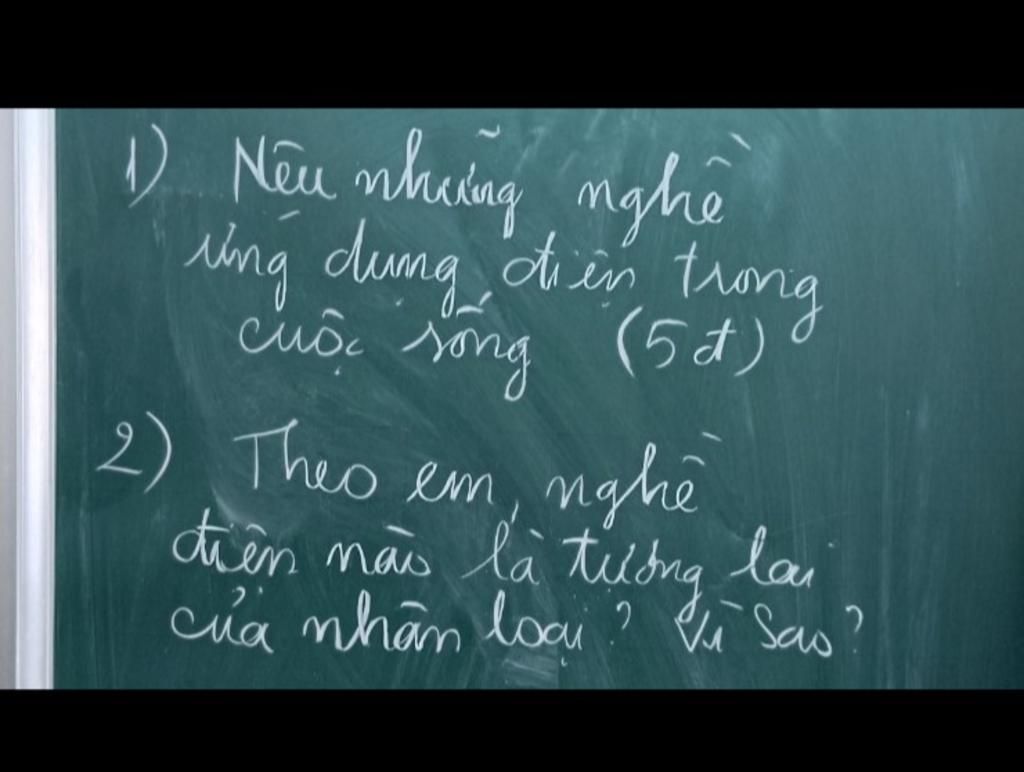 1) Nêu những nghề
ứng dụng điện trong
cuộc sống (5đ)
2) Theo em, nghề
điện nào là tương lai
của nhân loại? Vì sao?